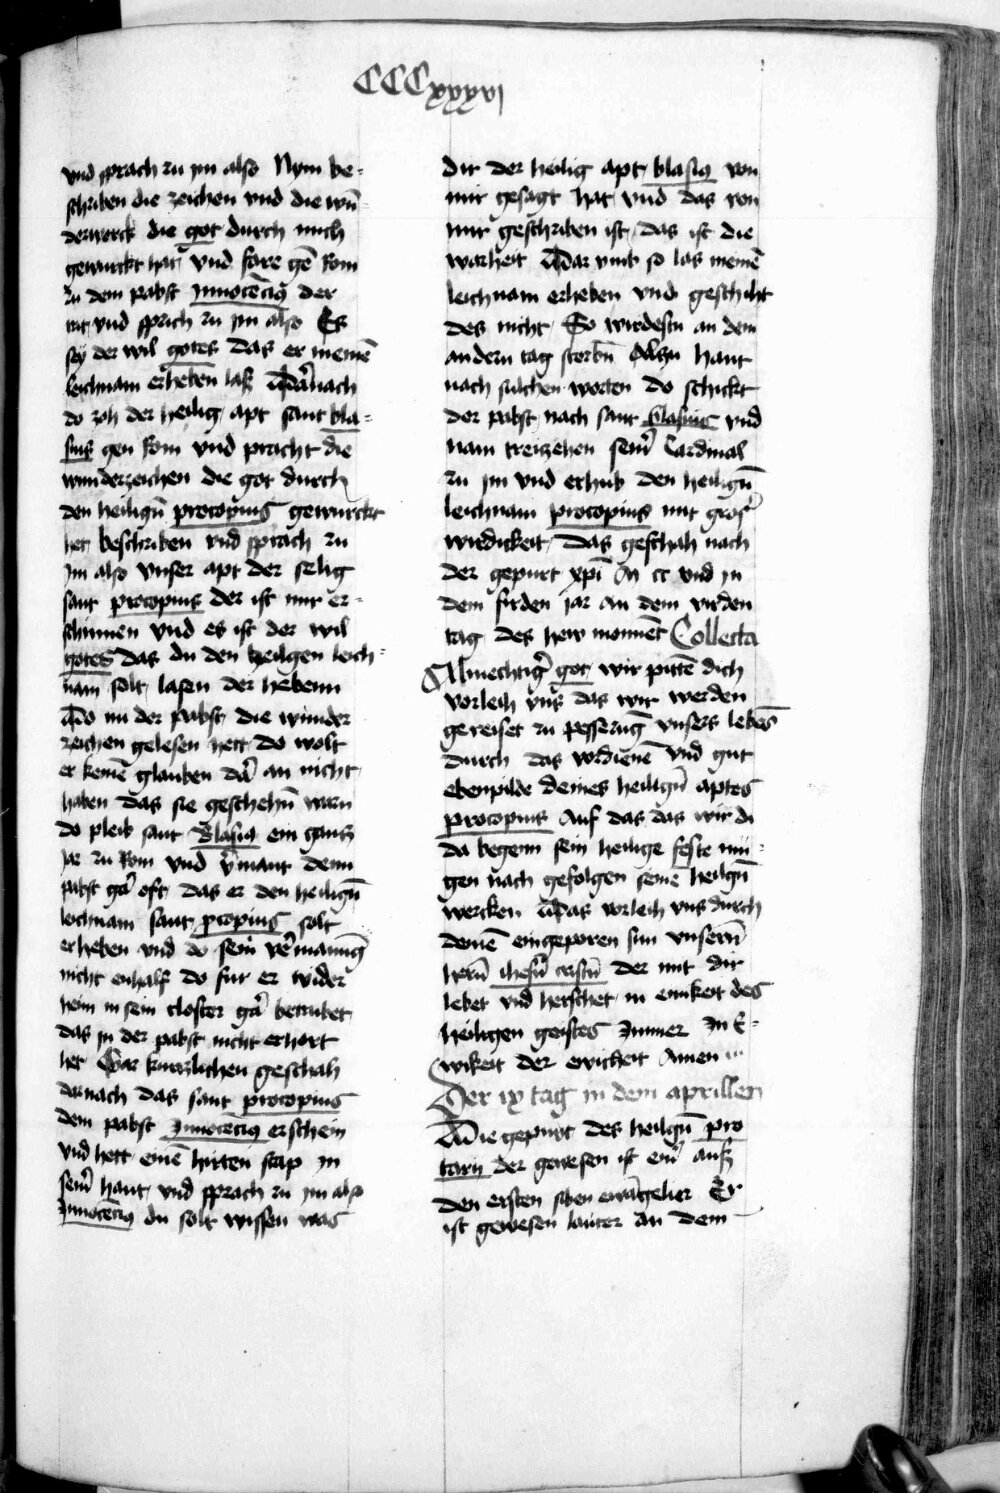 CCCxxxvj
vnd sprach zu jm also Nym be-
schriben die zeichen vnd die wū-
derwerck die got durch mich
gewurckt hat vnd fare gē Rom
zu dem pabst Jnnocēciꝰ der
rit vnd sprich zu jm also Es
sey der wil gotes das er meinē
leichnam erheben laß Vn̄ darnach
do zoh der heilig apt sant bla-
sius gen Rom vnd pracht die
wunderzeichen die got durch
den heiligū procopius gewurckt
het beschriben vnd sprach zu
jm also vnser apt der selig
sant procopius der ist mir er-
schinnen vnd es ist der wil
gotes das du den heiligen leich-
nam solt lasen der hebenn
Vn̄ do nu der pabst die wunder
zeichen gelesen hett do wolt
er keinē glauben dar an nicht
haben das sie geschehn̄ warn
do pleib sant Blasiꝰ ein gancz
jar zu Rom vnd v̄mant denn
pabst gar oft das er den heiligū
leichnam sant procopius solt
erheben vnd do sein v̄manūg
nicht enhalf do fur er wider
heim in sein closter gar betrubet
das jn der pabst nicht erhort
het Gar kurczlichen geschah
darnach das sant procopius
dem pabst Jnnocēciꝰ erschein
vnd hett einē hirten stap jn
sein̄ hant vnd sprach zu jm also
Jnnocēciꝰ du solt wissen was
dir der heilig apt blasiꝰ von
mir gesagt hat vnd das von
mir geschriben ist das ist die
warheit Vn̄ dar vmb so las meinē
leichnam erheben vnd geschiht
des nicht So wirdestu an dem
andern tag sterbn̄ Alczu hant
nach sulchen worten do schickt
der pabst nach sant blasius vnd
nam treizehen sein̄ Cardinal
zu jm vnd erhub den heiligū
leichnam procopius mit groß̄
wirdickeit Das geschah nach
der gepurt xp̄i M cc vnd jn
dem firden jar an dem virden
tag des hew monnēt Collecta
Almechtiḡ got wir pittē dich
vorleih vns das wir werden
gereiset zu pesserūg vnsers lebēs
durch das vordienē vnd gut
ebenpilde deines heiligū aptes
procopius Auf das das wir di
da begenn sein heilige feste mu-
gen nach gefolgen seinē heilgū
wercken Vn̄ das vorleih vns durch
deinē eingeporen sun vnsern̄
hern̄ ihesū cristū der mit dir
lebet vnd herschet in einikeit des
heiligen geistes Jmmer Jn E-
wikeit der ewickeit Amen
Der ix tag in dem aprillen
Die gepurt des heilgū pro
tarij der gewesen ist ein̄ auß
den ersten siben ewāgelier Er
ist gewesen lauter an dem